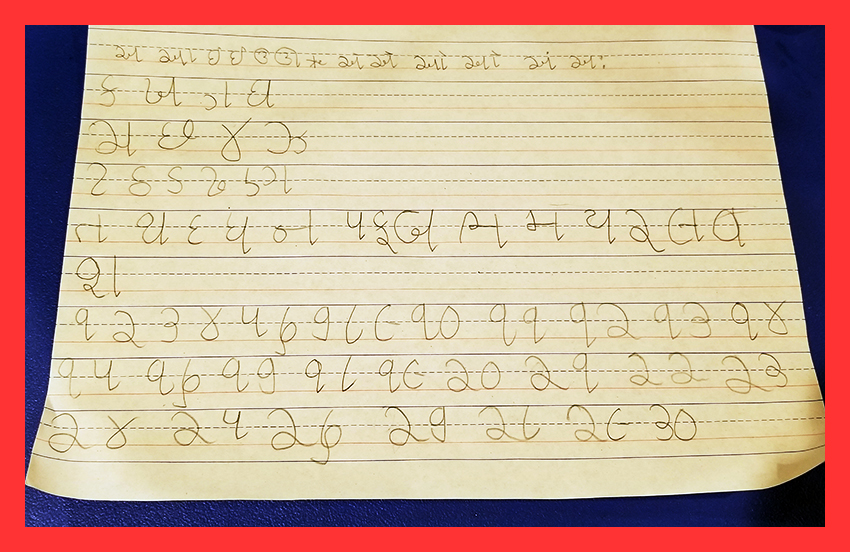 અ આ ઇ ઈ ઉ ઊ * એ ઐ ઓ ઔ અં અઃ
ક ખ ગ ઘ
ચ છ ૪ ઝ
ટ ઠ ડ ઢ ણ
ત થ દ ધ ન પ ફ બ ભ મ ય ર લ વ
શ
૧ ૨ ૩ ૪ ૫ ૬ ૭ ૮ ૯ ૧૦ ૧૧ ૧૨ ૧૩ ૧૪
૧૫ ૧૬ ૧૭ ૧૮ ૧૯ ૨૦ ૨૧ ૨૨ ૨૩
૨૪ ૨૫ ૨૬ ૨૭ ૨૮ ૨૯ ૩૦